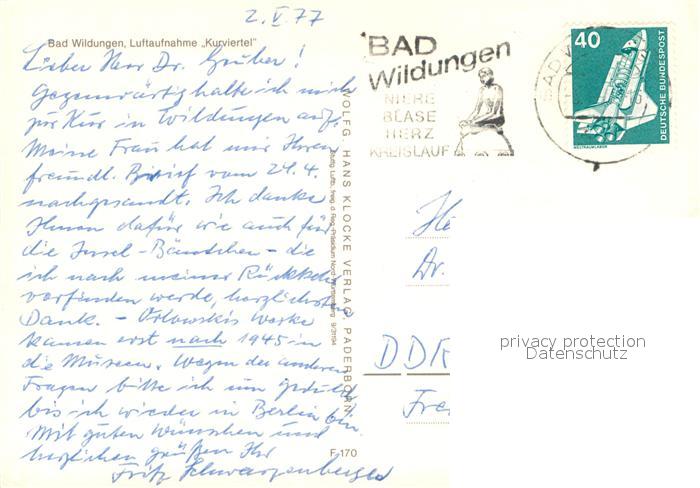 2. V. 77
Bad Wildungen, Luftaufnahme „Kurviertel"
Lieber Herr Dr. Gruber!
Gegenwärtig halte ich mich
zur Kur in Wildungen auf.
Meine Frau hat mir Ihren
freundl. Brief vom 24.4.
nachgesandt. Ich danke
Ihnen dafür wie auch für
die Insel-Bändchen - die
ich nach meiner Rückkehr
vorfinden werde, herzlichsten
Dank. - Orlowskis Werke
kamen erst nach 1945 in
die Museen. Wegen der anderen
Fragen bitte ich um Geduld
bis ich wieder in Berlin bin.
Mit guten Wünschen und
herzlichen Grüßen Ihr
Fritz Schwarzenberger
WOLFG. HANS KLOCKE VERLAG PADERBORN
Luftb. freig. d. Reg.-Präsidium Nord-Württemberg 9/31194
F-170
BAD
Wildungen
NIERE
BLASE
HERZ
KREISLAUF
BAD
40
DEUTSCHE BUNDESPOST
WELTRAUMLABOR
He
Dr.
DDR
Fre
privacy protection
Datenschutz